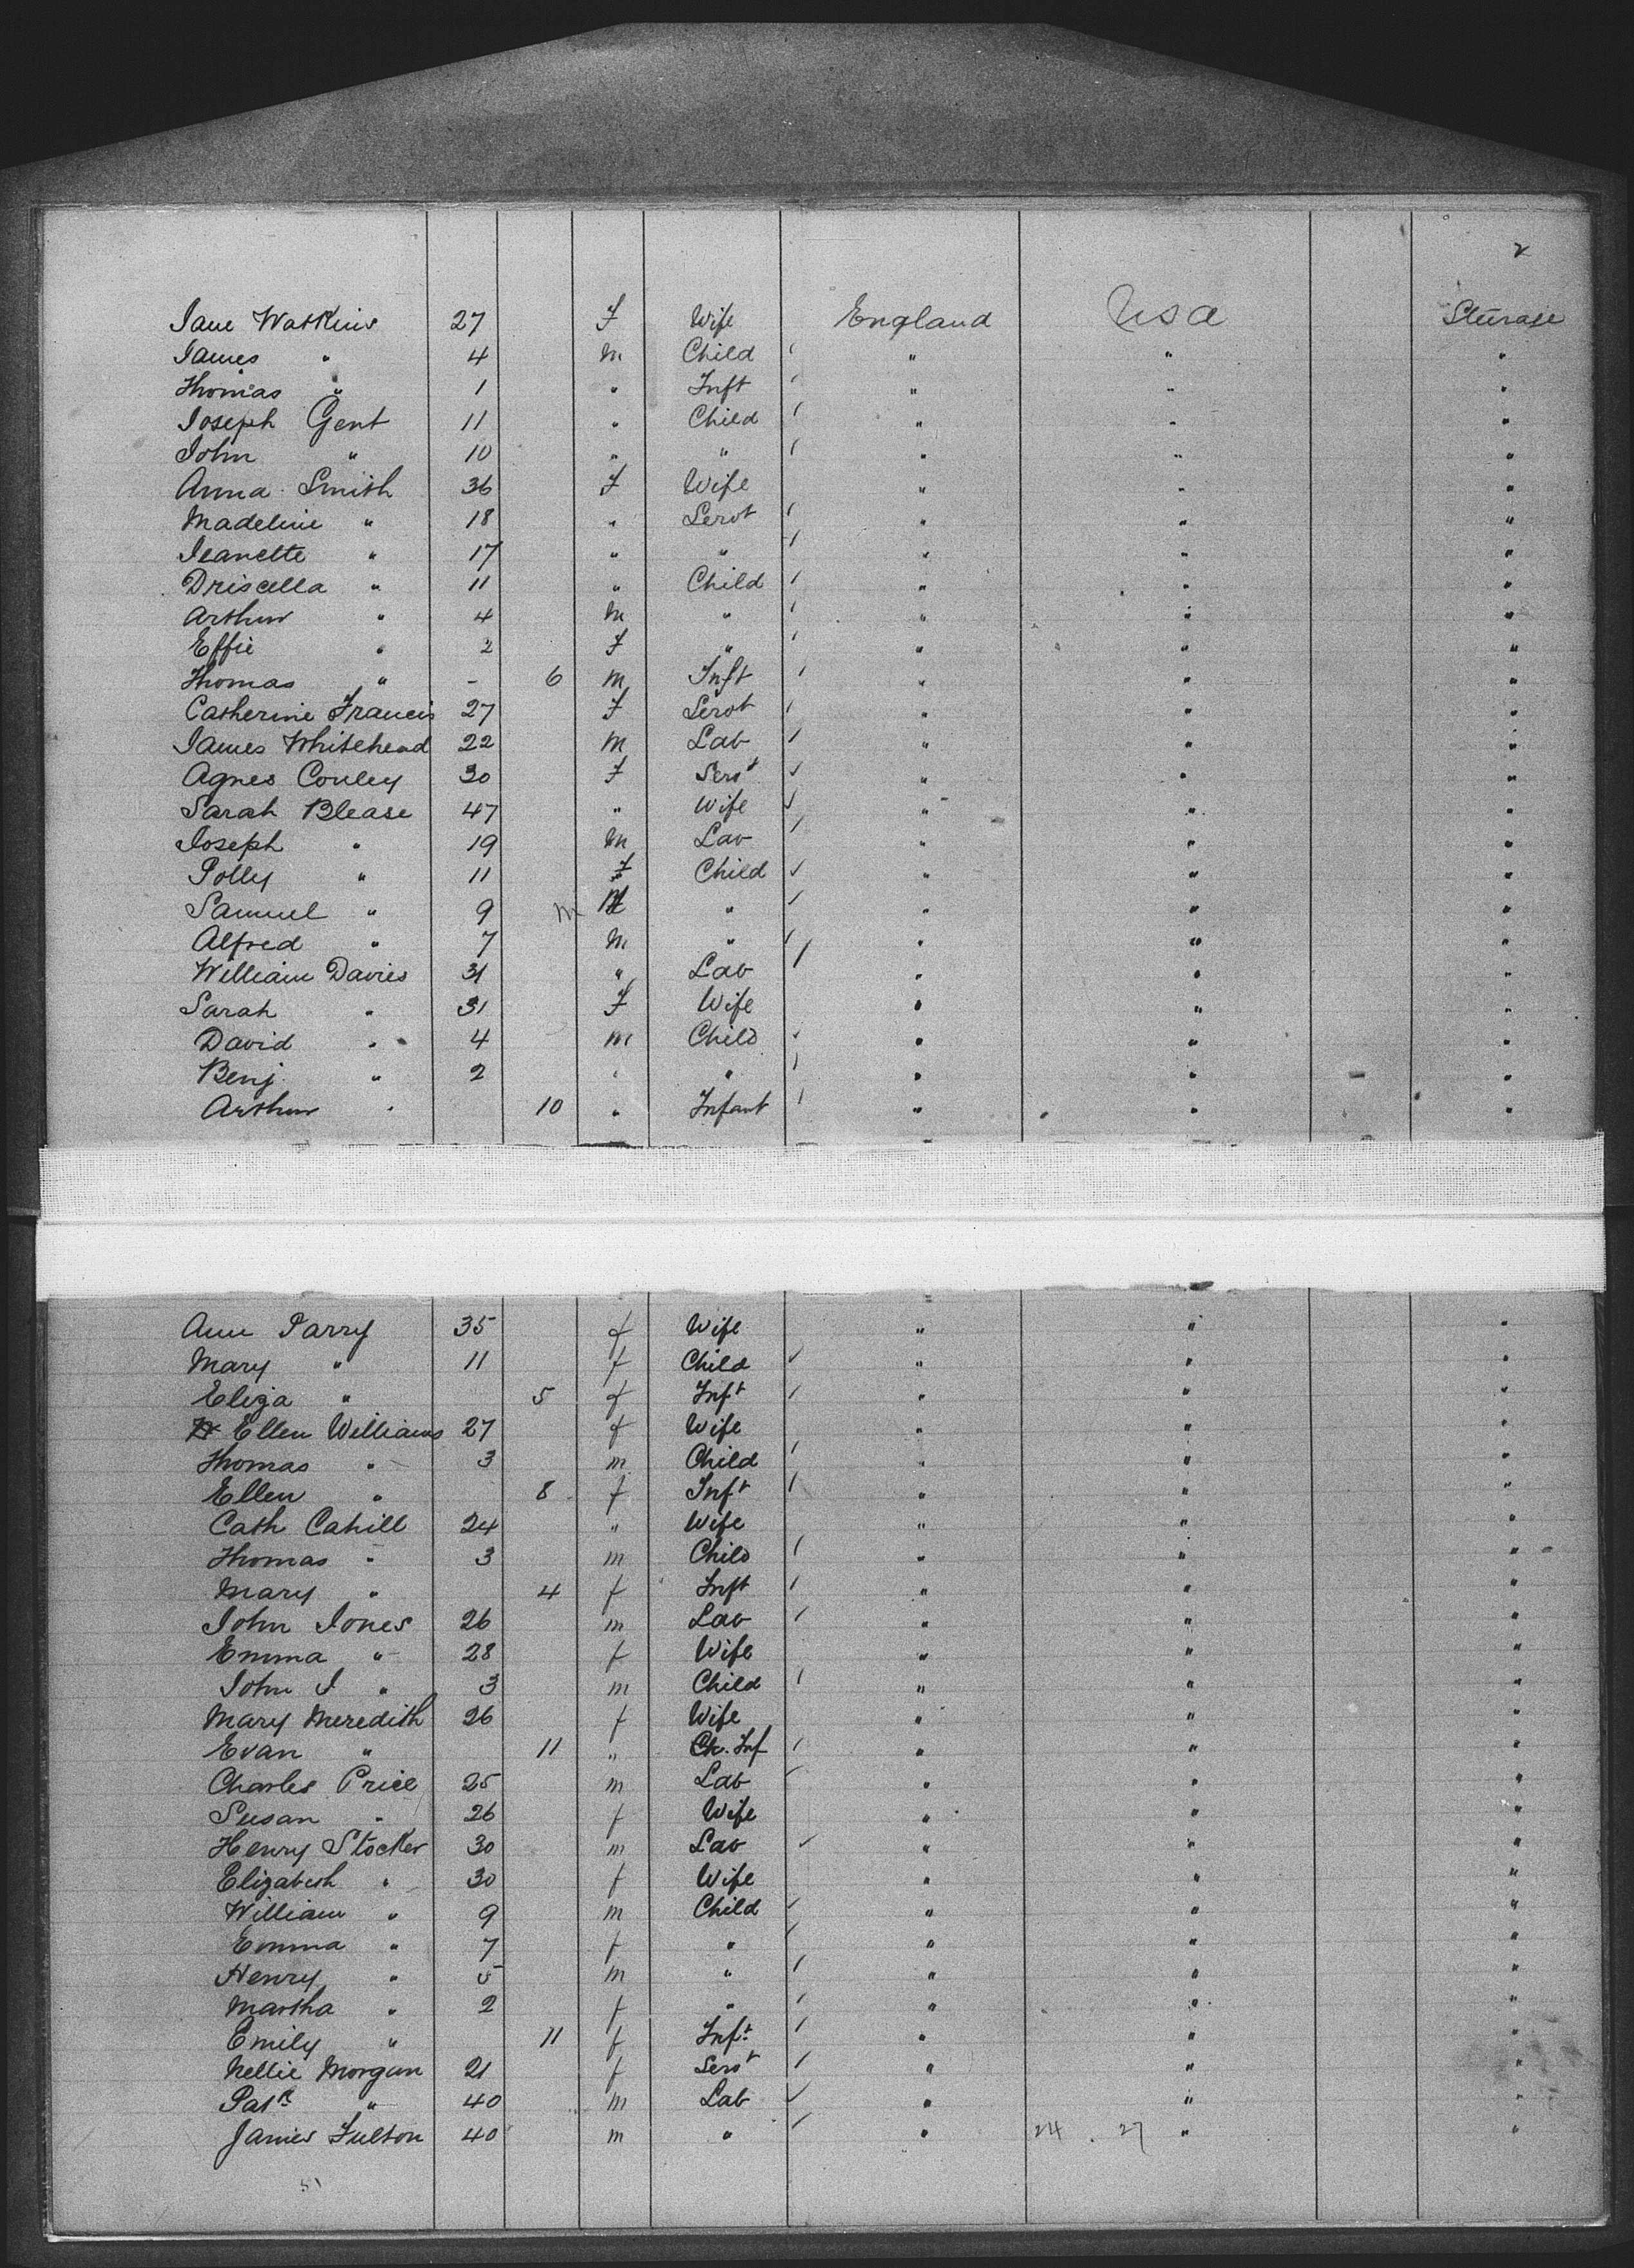 2
Jane Watkins 27 F Wife England USA Steerage
James " 4 m Child " " "
Thomas " 1 " Inft " " "
Joseph Gent 11 " Child " " "
John " 10 " " " " "
Anna Smith 36 F Wife " " "
Madeline " 18 " Servt " " "
Jeanette " 17 " " " " "
Driscella " 11 " Child " " "
Arthur " 4 m " " " "
Effie " 2 F " " " "
Thomas " - 6 m Inft " " "
Catherine Francis 27 F Servt " " "
James Whitehead 22 m Lab " " "
Agnes Conley 30 F Servt " " "
Sarah Blease 47 " Wife " " "
Joseph " 19 m Lab " " "
Polly " 11 F Child " " "
Samuel " 9 m " " " "
Alfred " 7 m " " " "
William Davies 31 " Lab " " "
Sarah " 31 F Wife " " "
David " 4 m Child " " "
Benj. " 2 " " " " "
Arthur " 10 " Infant " " "
Ann Parry 35 f Wife " " "
Mary " 11 f Child " " "
Eliza " 5 f Inft " " "
Ellen Williams 27 f Wife " " "
Thomas " 3 m Child " " "
Ellen " 8 f Inft " " "
Cath Cahill 24 " Wife " " "
Thomas " 3 m Child " " "
Mary " 4 f Inft " " "
John Jones 26 m Lab " " "
Emma " 28 f Wife " " "
John J " 3 m Child " " "
Mary Meredith 26 f Wife " " "
Evan " 11 " Ch. Inf " " "
Charles Price 25 m Lab " " "
Susan " 26 f Wife " " "
Henry Stocker 30 m Lab " " "
Elizabeth " 30 f Wife " " "
William " 9 m Child " " "
Emma " 7 f " " " "
Henry " 5 m " " " "
Martha " 2 f " " " "
Emily " 11 f Inft " " "
Nellie Morgan 21 f Servt " " "
Patk " 40 m Lab " " "
James Fulton 40 m " " 24 . 27 " "
51